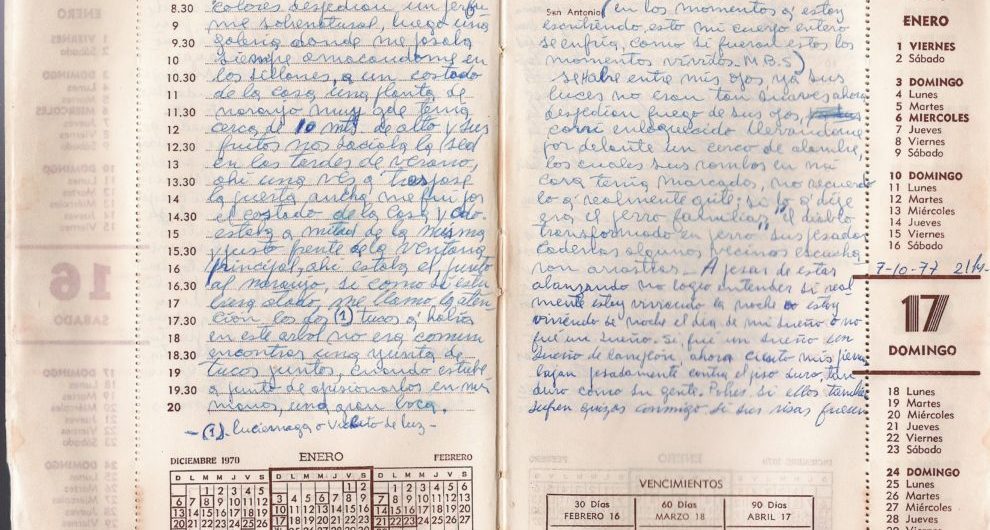 8.30 colores despedian un perfu
9 me sobrenatural, luego una
9.30 galeria donde me posaba
10 siempre amacandome en
10.30 los sillones, a un costado
11 de la casa una planta de
11.30 naranjo muy gde tenia
12 cerca de 10 mts de alto y sus
12.30 frutos nos saciaba la sed
13 en las tardes de verano,
13.30 ahi una vés q' traspasé
14 la puerta ancha me fui por
14.30 el costado de la casa y cdo
15 estaba a mitad de la misma
15.30 y justo frente de la ventana
16 principal, ahi estaba el, junto
16.30 al naranjo, si como si estu
17 biera alado, me llamó la aten
17.30 cion los dos (1) tucos q' había
18 en este arbol no era comun
18.30 encontrar una yunta de
19 tucos juntos, cuando estube
19.30 a punto de apricionarlos en mis
20 manos, una gran boca,
(1) luciernaga o Vichito de luz
DICIEMBRE 1970 ENERO FEBRERO
D L M M J V S
San Antonio (en los momentos q' estoy
escribiendo esto mi cuerpo entero
se enfria, como si fueran estos los
momentos vividos. M.B.S)
se habre entre mis ojos ya sus
luces no eran tan suaves ahora
despedian fuego de sus ojos,
corri enloquecido llevandome
por delante un cerco de alambre,
los cuales sus rombos en mi
cara tenia marcados, no recuerdo
lo q' realmente grité; si lo q' dije
era el perro familiar, "el diablo
transformado en perro" sus pesadas
cadenas algunos vecinos escucha
ron arrastrar - A pesar de estar
alcanzando no logro entender si real
mente estoy viviendo la noche o estoy
viviendo de noche el dia de mi sueño o no
fue un sueño. Si, fue un sueño sin
sueño de ahora siento mis piernas
bajan pesadamente contra el piso duro, tan
duro como su gente. Pobres si ellos tambien
sufren quizas conmigo si sus risas fuesen
VENCIMIENTOS
30 Días 60 Días 90 Días
FEBRERO 16 MARZO 18 ABRIL 17
ENERO
1 VIERNES
2 Sábado
3 DOMINGO
4 Lunes
5 Martes
6 MIERCOLES
7 Jueves
8 Viernes
9 Sábado
10 DOMINGO
11 Lunes
12 Martes
13 Miércoles
14 Jueves
15 Viernes
16 Sábado
7-10-77
17
DOMINGO
18 Lunes
19 Martes
20 Miércoles
21 Jueves
22 Viernes
23 Sábado
24 DOMINGO
25 Lunes
26 Martes
27 Miércoles
28 Jueves